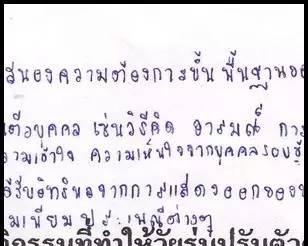 สนองความต้องการขั้นพื้นฐานขอ
นตัวบุคคล เช่นวิธีคิด อารมณ์ การ
วามเข้าใจ ความเห็นใจจากบุคคลรอบข้
ได้รับอิทธิพลจากการแสดงออกของ
มเนียมประเพณีต่างๆ
กรรมที่ทำให้วัยรุ่นปรับตัว